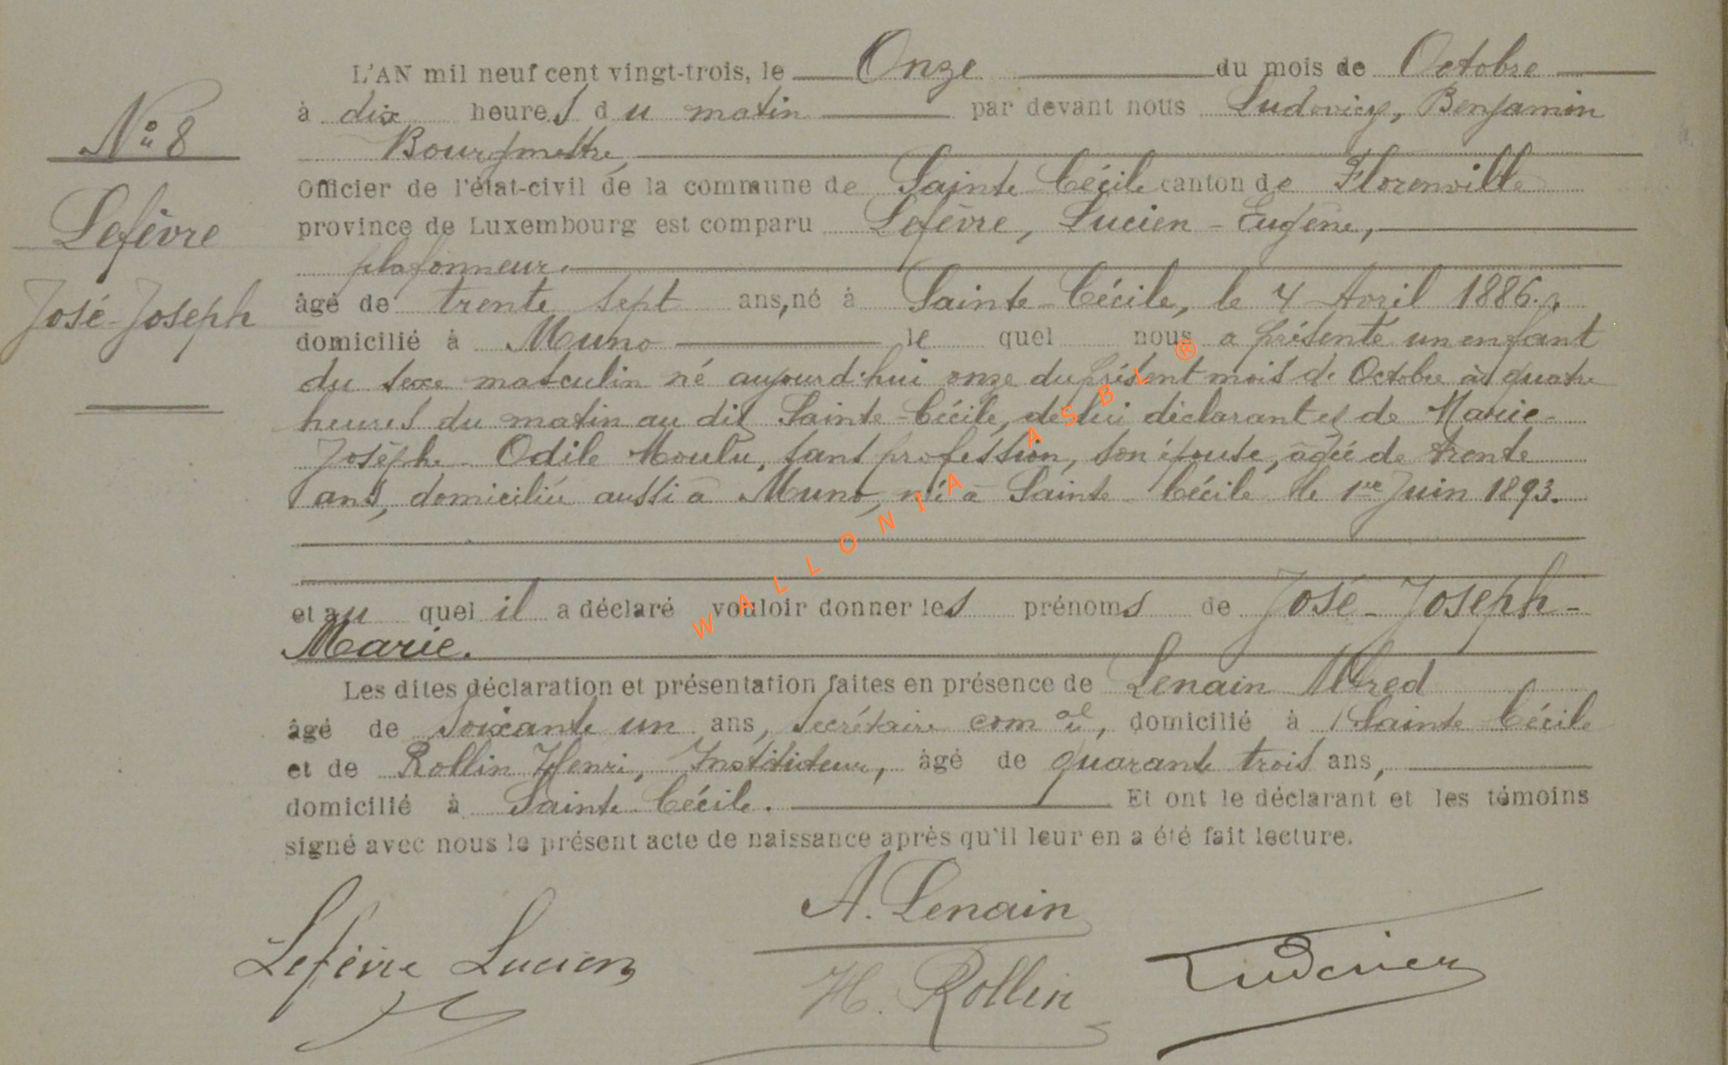 L'AN mil neuf cent vingt-trois, le Onze du mois de Octobre
à dix heures du matin par devant nous Ludovicy, Benjamin
Bourgmestre,
Officier de l'état-civil de la commune de Sainte Cécile canton de Florenville
province de Luxembourg est comparu Lefèvre, Lucien-Eugène,
plafonneur.
âgé de trente sept ans, né à Sainte-Cécile, le 4 Avril 1886.
domicilié à Muno le quel nous a présenté un enfant
du sexe masculin né aujourd'hui onze du présent mois de Octobre à quatre
heures du matin au dit Sainte-Cécile, de lui déclarant et de Marie-
Josèphe-Odile Moulu, sans profession, son épouse, âgée de trente
ans, domiciliée aussi à Muno, née à Sainte-Cécile le 1re Juin 1893.
et au quel il a déclaré vouloir donner les prénoms de José-Joseph-
Marie.
Les dites déclaration et présentation faites en présence de Lenain Alfred
âgé de soixante un ans, secrétaire comal, domicilié à Sainte Cécile
et de Rollin Henri, Instituteur, âgé de quarante trois ans,
domicilié à Sainte-Cécile. Et ont le déclarant et les témoins
signé avec nous le présent acte de naissance après qu'il leur en a été fait lecture.
No 8
Lefèvre
José-Joseph
A. Lenain
Lefèvre Lucien
H. Rollin
Ludovicy
WALLONIA ASBL ®